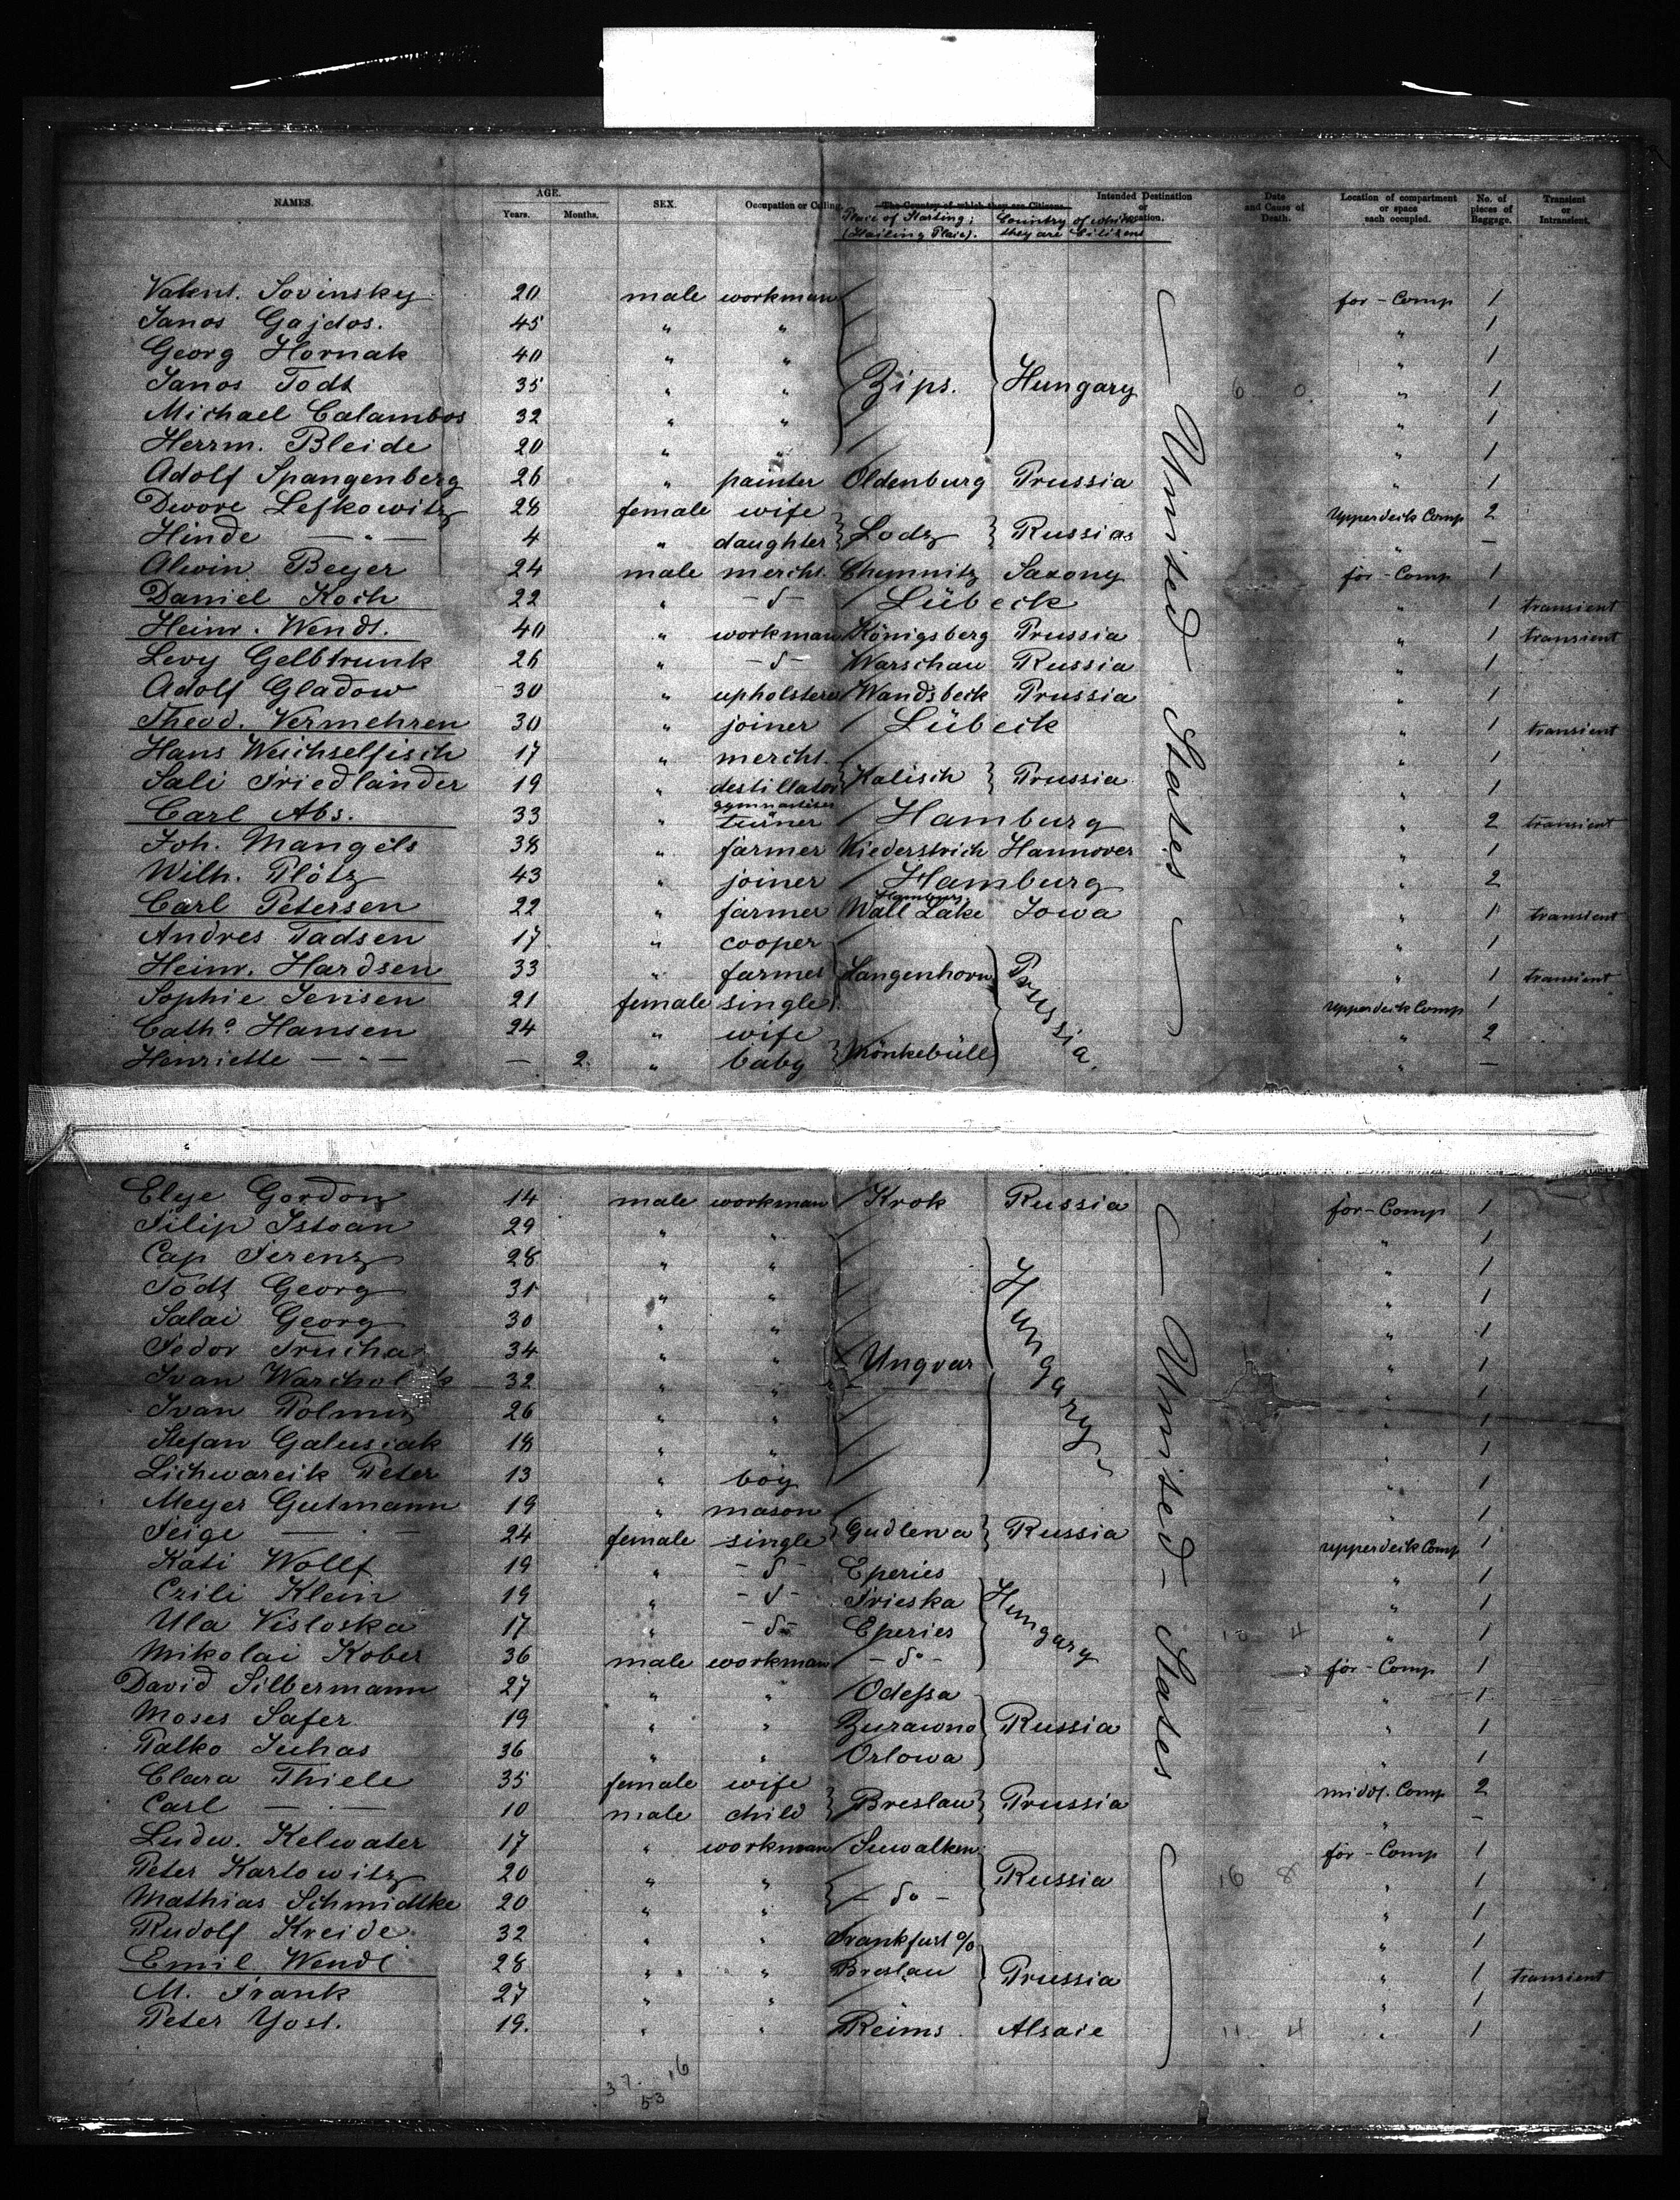 NAMES. AGE. Years. Months. SEX. Occupation or Calling. The Country of which they are Citizens. Intended Destination or Location. Date and Cause of Death. Location of compartment or space each occupied. No. of pieces of Baggage. Transient or Intransient.
Place of Starting; (Hailing Place). Country of which they are Citizens
Valent. Sovinsky 20 male workman for-Comp 1
Janos Gajdos. 45 " " " 1
Georg Hornak 40 " " " 1
Janos Todt 35 " " Zips. Hungary " 1
Michael Calambos 32 " " " 1
Herrm. Bleide 20 " " " 1
Adolf Spangenberg 26 " painter Oldenburg Prussia " 1
Dwore Lefkowitz 28 female wife Upperdeck Comp 2
Hinde — " — 4 " daughter Lodz Russia " —
Alwin Beyer 24 male mercht. Chemnitz Saxony for-Comp 1
Daniel Koch 22 " -d- Lübeck " 1 transient
Heinr. Wendt. 40 " workman Königsberg Prussia " 1 transient
Levy Gelbtrunk 26 " -d- Warschau Russia " 1
Adolf Gladow 30 " upholsterer Wandsbeck Prussia " 1
Theod. Vermehren 30 " joiner Lübeck " 1 transient
Hans Weichselfisch 17 " mercht. " 1
Sali Friedländer 19 " destillator Kalisch Prussia " 1
Carl Abs. 33 " gymnastiser turner Hamburg " 2 transient
Joh. Mangels 38 " farmer Niederstrich Hannover " 1
Wilh. Plötz 43 " joiner Hamburg " 2
Carl Petersen 22 " farmer Hamburg Wall Lake Iowa " 1 transient
Andres Tadsen 17 " cooper " 1
Heinr. Hardsen 33 " farmer Langenhorn Prussia " 1 transient
Sophie Jensen 21 female single Upperdeck Comp 1
Catha. Hansen 24 " wife " 2
Henriette — " — — 2. " baby Mönkebüll " —
United States
Elye Gordon 14 male workman Krok Russia for-Comp 1
Filip Istvan 29 " " " 1
Cap Ferenz 28 " " " 1
Todt Georg 31 " " " 1
Salai Georg 30 " " " 1
Fedor Trucha 34 " " Ungvar Hungary " 1
Ivan 32 " " " 1
Ivan 26 " " " 1
Stefan Galusiak 18 " " 1
Lichwarcik Peter 13 " boy " 1
Meyer Gutmann 19 " mason " 1
Feige — " — 24 female single Gudlewa Russia upperdeck Comp 1
Kati Wollf 19 " -d- Eperies " 1
Czili Klein 19 " -d- Frieska Hungary " 1
Ula Visloska 17 " -d- Eperies " 1
Mikolai Kober 36 male workman -do- for-Comp 1
David Silbermann 27 " " Odessa " 1
Moses Safer 19 " " Zurawno Russia " 1
Palko Juhas 36 " " Orlowa " 1
Clara Thiele 35 female wife middl. Comp 2
Carl — " — 10 male child Breslau Prussia " —
Ludw. Kelwater 17 " workman Suwalken for-Comp 1
Peter Karlowitz 20 " " Russia " 1
Mathias Schmidtke 20 " " -do- " 1
Rudolf Kreide 32 " " Frankfurt %o " 1
Emil Wendl 28 " " Breslau Prussia " 1 transient
M. Frank 27 " " " 1
Peter Yost. 19. " " Reims. Alsaie " 1
United States
37. 16
53